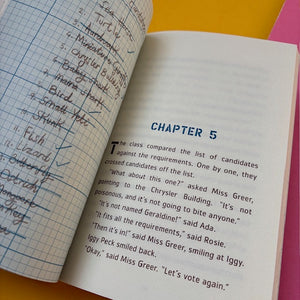 Turtle
Miniature
Chrysler Building
Baby
Bird
Small
Skunk
11. Fish
12. Lizard
CHAPTER 5
The class compared the list of candidates
against the requirements. One by one, they
crossed candidates off the list.
"What about this one?" asked Miss Greer,
pointing to the Chrysler Building. "It's not
poisonous, and it's not going to bite anyone."
"It's not named Geraldine!" said Ada.
"It fits all the requirements," said Rosie.
"Then it's in!" said Miss Greer, smiling at Iggy.
Iggy Peck smiled back.
"Okay," said Miss Greer, "Let's vote again."